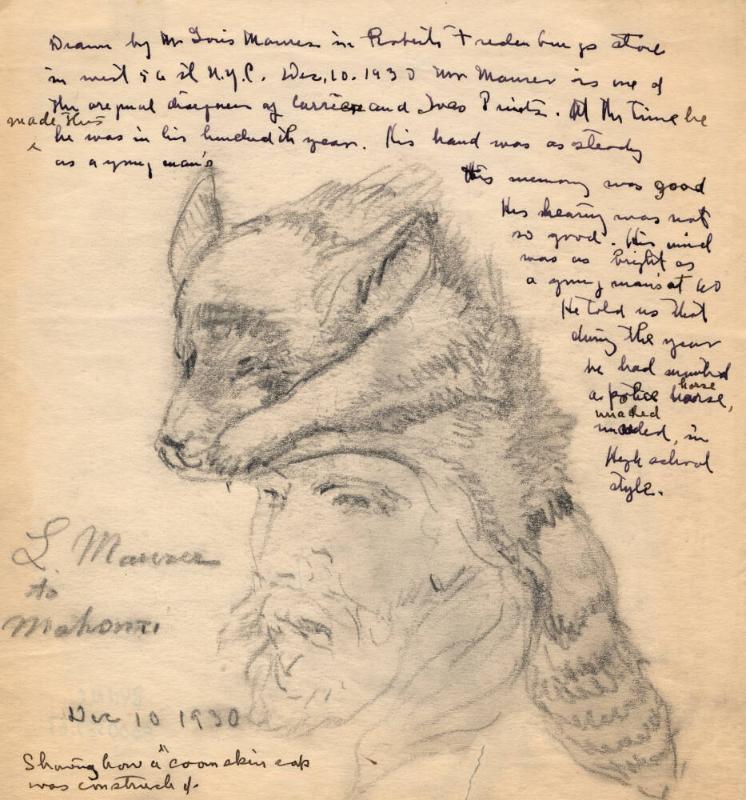 Drawn by Mr Louis Maurer in Roberts Fredenburgs store
in west 56 st N.Y.C. Dec, 10. 1930 Mr Maurer is one of
the original designers of Currier and Ives Prints. At the time he
made this
he was in his hundredth year. His hand was as steady
as a young man's
His memory was good
His hearing was not
so good. His mind
was as bright as
a young man's at 60
He told us that
during the year
he had mounted
a police horse,
horse
unaided
in
High school
style.
L. Maurer
to
Mahonri
Dec 10 1930
Showing how a "coon skin cap
was constructed.